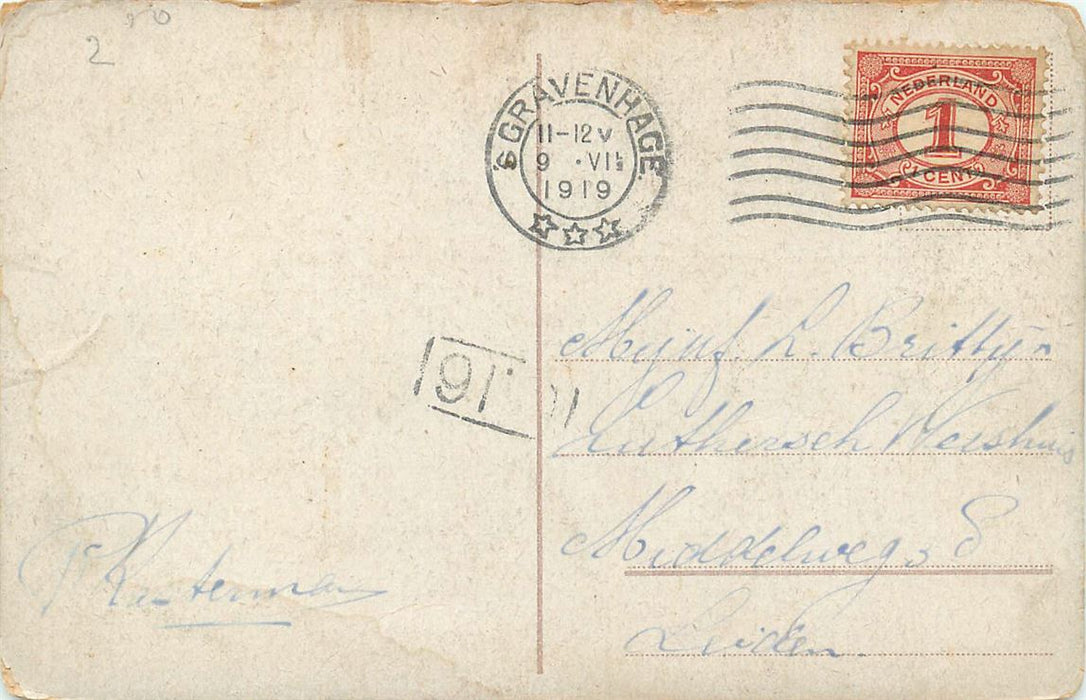 2
'S GRAVENHAGE
11-12 V
9 · VII
1919
NEDERLAND
1
1 CENT
Mejuf. L. Brittijn
Luthersch Weeshuis
Middelweg 38
Leiden.
P Kusterman